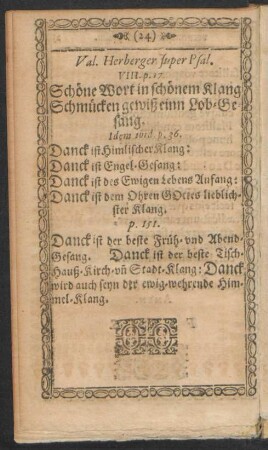 (24)
Val. Herberger super Psal.
VIII. p. 17.
Schöne Wort in schönem Klang
Schmücken gewiß einn Lob-Ge-
sang.
Idem ibid. p. 36.
Danck ist Himlischer Klang:
Danck ist Engel-Gesang:
Danck ist des Ewigen Lebens Anfang:
Danck ist dem Ohren GOttes lieblich-
ster Klang.
p. 151.
Danck ist der beste Früh- vnd Abend-
Gesang. Danck ist der beste Tisch-
Hauß-Kirch-vñ Stadt-Klang: Danck
wird auch seyn der ewig-wehrende Him-
mel-Klang.